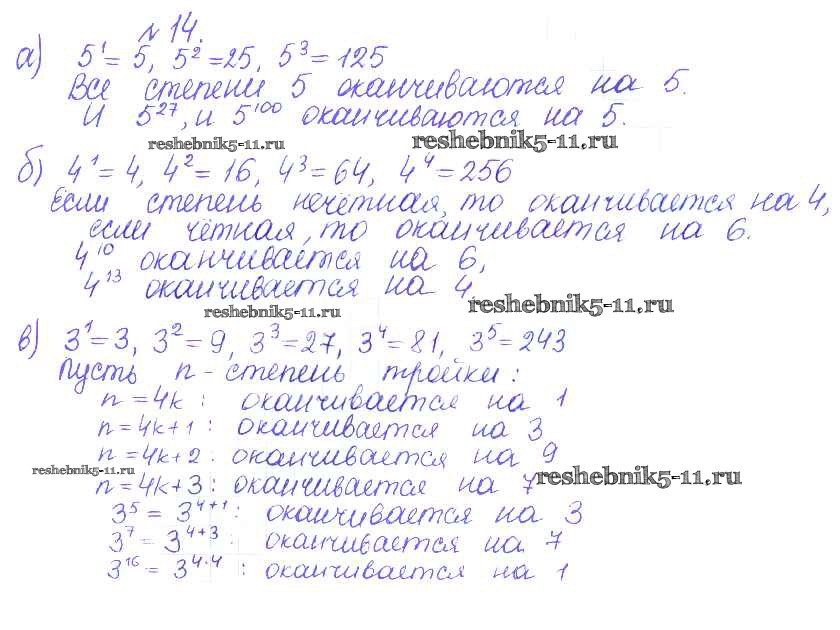 № 14.
а) 5¹ = 5, 5² = 25, 5³ = 125
Все степени 5 оканчиваются на 5.
И 5²⁷, и 5¹⁰⁰ оканчиваются на 5.
reshebnik5-11.ru reshebnik5-11.ru
б) 4¹ = 4, 4² = 16, 4³ = 64, 4⁴ = 256
Если степень нечётная, то оканчивается на 4,
если чётная, то оканчивается на 6.
4¹⁰ оканчивается на 6,
4¹³ оканчивается на 4.
reshebnik5-11.ru reshebnik5-11.ru
в) 3¹ = 3, 3² = 9, 3³ = 27, 3⁴ = 81, 3⁵ = 243
Пусть n - степень тройки:
n = 4k : оканчивается на 1
n = 4k+1 : оканчивается на 3
n = 4k+2 : оканчивается на 9
reshebnik5-11.ru reshebnik5-11.ru
n = 4k+3 : оканчивается на 7
3⁵ = 3⁴⁺¹ : оканчивается на 3
3⁷ = 3⁴⁺³ : оканчивается на 7
3¹⁶ = 3⁴·⁴ : оканчивается на 1